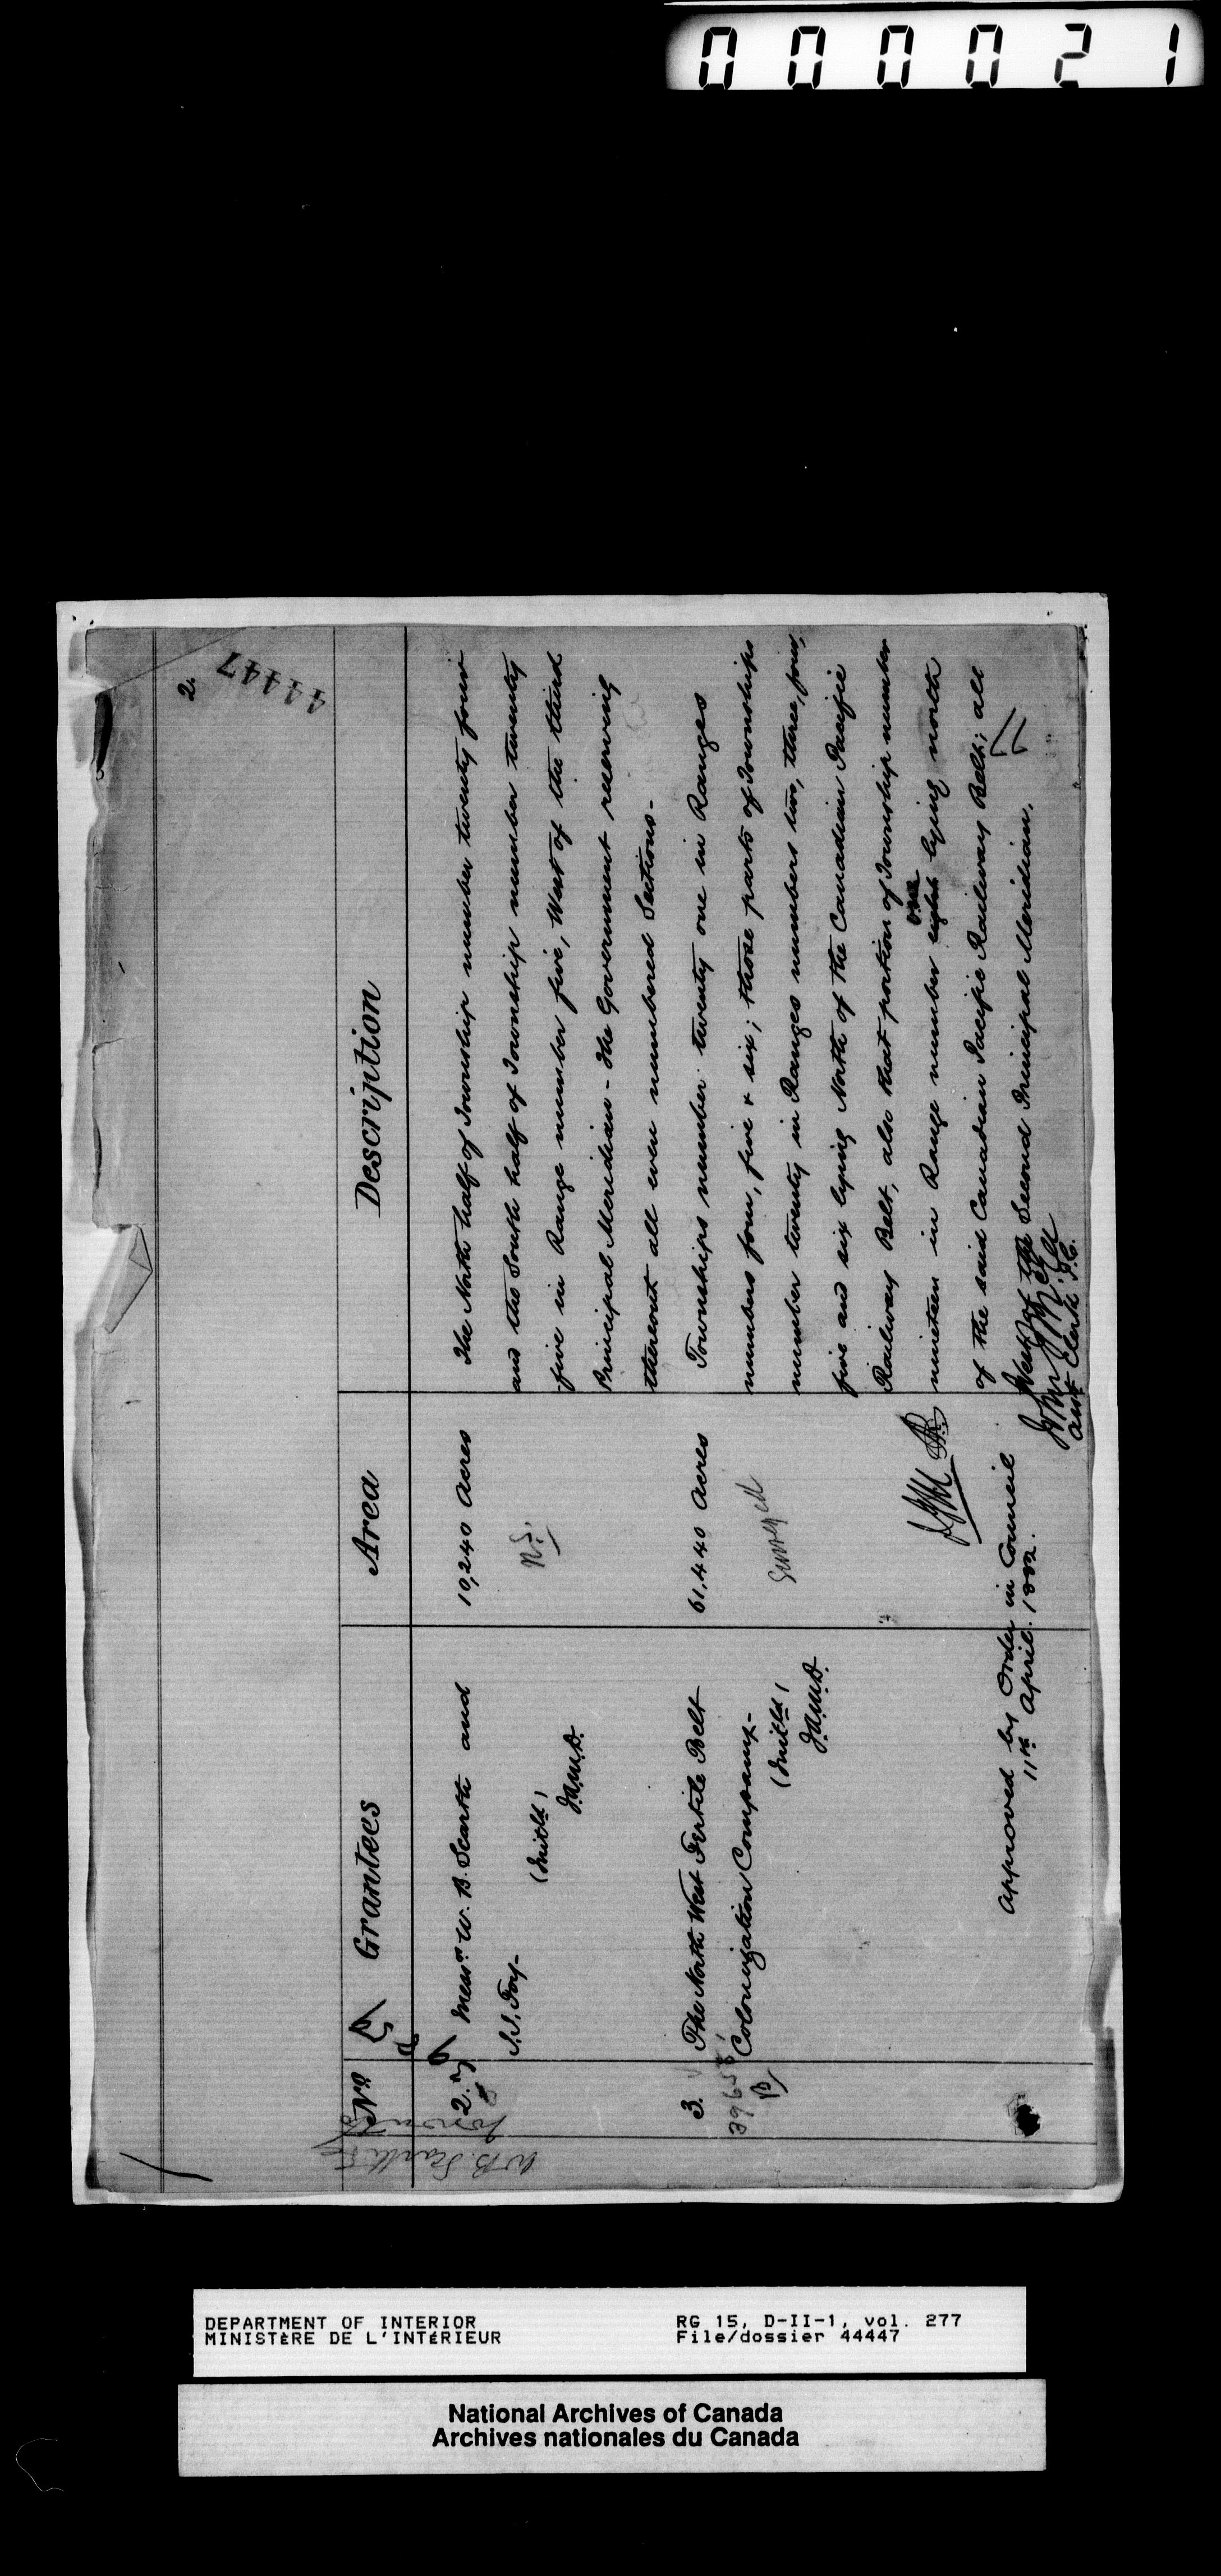 000021
2.
44447
No Grantees Area Description
2. Messrs W. B. Scarth and
J. J. Foy-
(Initld)
J.A.M.D.
10,240 Acres
N.S.
The North half of Township number twenty four
and the South half of Township number twenty
five in Range number five, West of the third
Principal Meridian - the Government reserving
thereout all even numbered Sections -
3. The North West Fertile Belt
Colonization Company-
(Initld)
J.A.M.D.
39658
61,440 Acres
Surveyed
Townships number twenty one in Ranges
numbers four, five & six; those parts of Townships
number twenty in Ranges numbers two, three, four,
five and six lying North of the Canadian Pacific
Railway Belt, also that portion of Township number
nineteen in Range number eight one lying north
of the said Canadian Pacific Railway Belt; all
West of the Second Principal Meridian.
Approved by Order in Council
11th April. 1882.
Asst Clerk P.C.
W B. Scarth
Toronto
DEPARTMENT OF INTERIOR
MINISTÈRE DE L'INTÉRIEUR
RG 15, D-II-1, vol. 277
File/dossier 44447
National Archives of Canada
Archives nationales du Canada